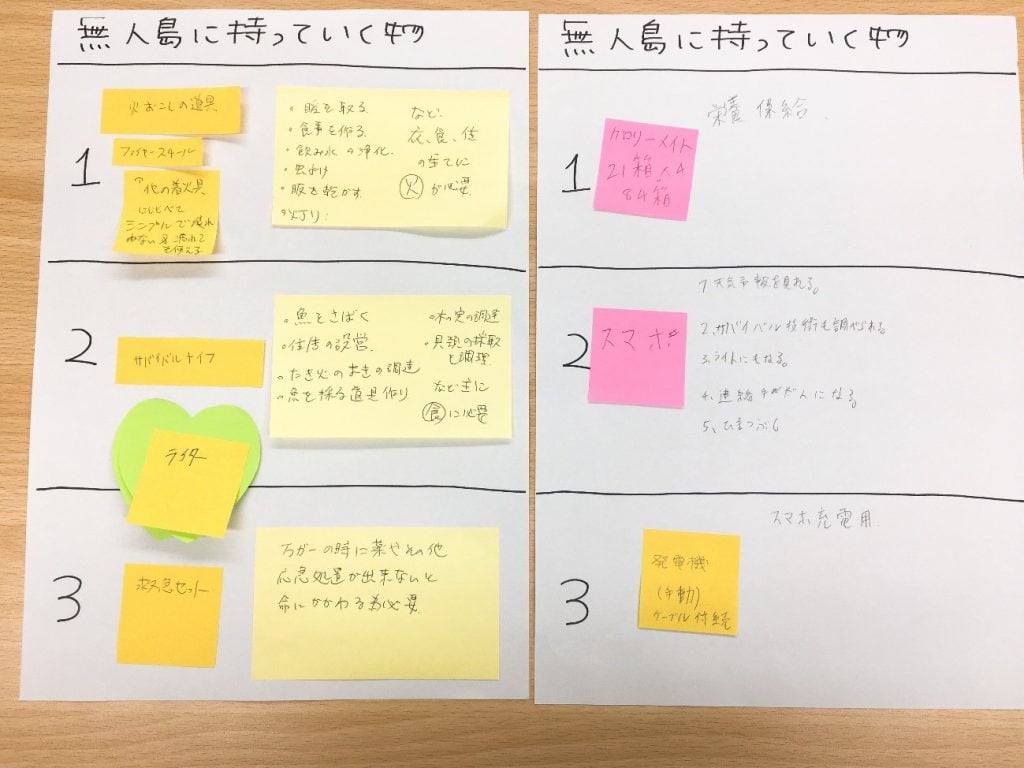 無人島に持っていく物
1
火おこしの道具
ファイヤースチール
他の着火具
にくらべて
シンプルで壊れ
濡れて
も使える
・暖を取る
・食事を作る
・飲み水の浄化
・虫よけ
・服を乾かす
・灯り
など、
衣、食、住
の全てに
火が必要
2
サバイバルナイフ
・魚をさばく
・住居の設営
・たき火のまきの調達
・魚を採る道具作り
・木の実の調達
・貝類の採取
と調理
など主に
食に必要
ライター
3
救急セット
万が一の時に薬やその他
応急処置が出来ないと
命にかかわる為必要
無人島に持っていく物
1
栄養保給
カロリーメイト
21箱×4
84箱
2
スマホ
1天気予報を見れる。
2、サバイバル技術も調べられる
3、ライトにもなる。
4、連絡手だんになる。
5、ひまつぶし
3
スマホ充電用
発電機
(手動)
ケーブル付続